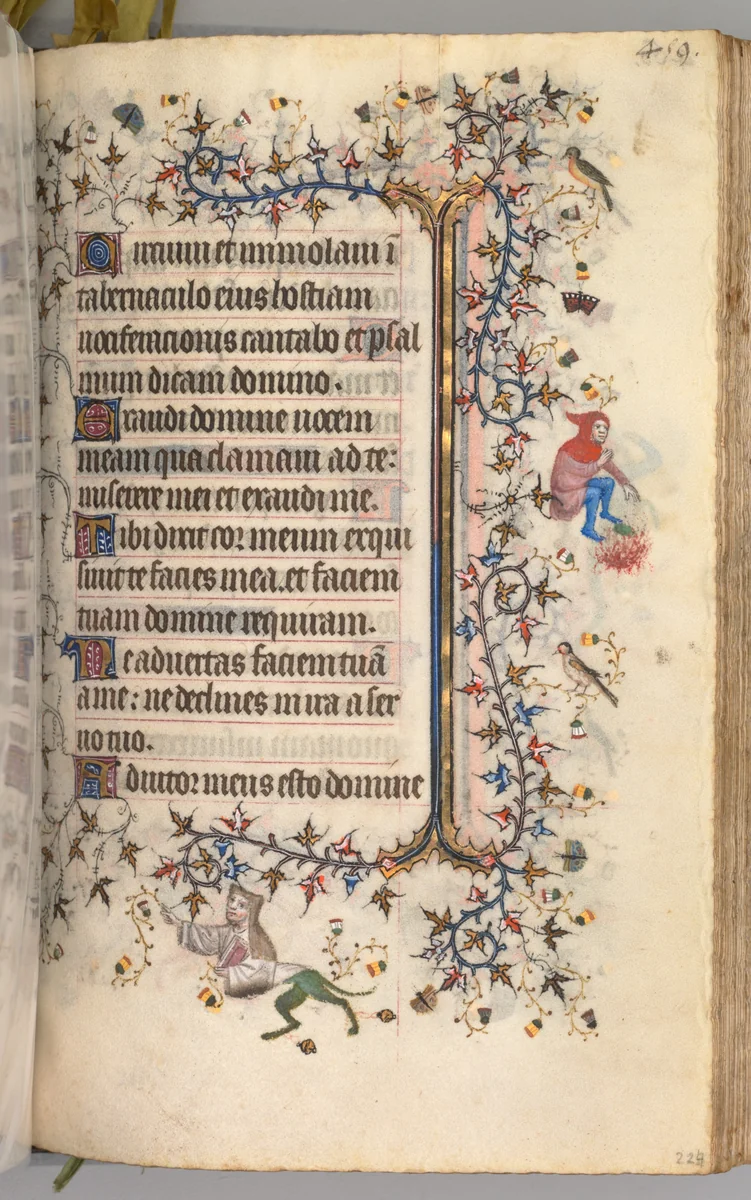 459.
ircuiui et immolaui ī
tabernaculo eius hostiam
uociferacionis cantabo et psal
mum dicam domino.
Exaudi domine uocem
meam qua clamaui ad te:
miserere mei et exaudi me.
Tibi dixit cor meum exqui
siuit te facies mea. et faciem
tuam domine requiram.
Ne aduertas faciem tuā
a me: ne declines in ira a ser
uo tuo.
Adiutor meus esto domine
224